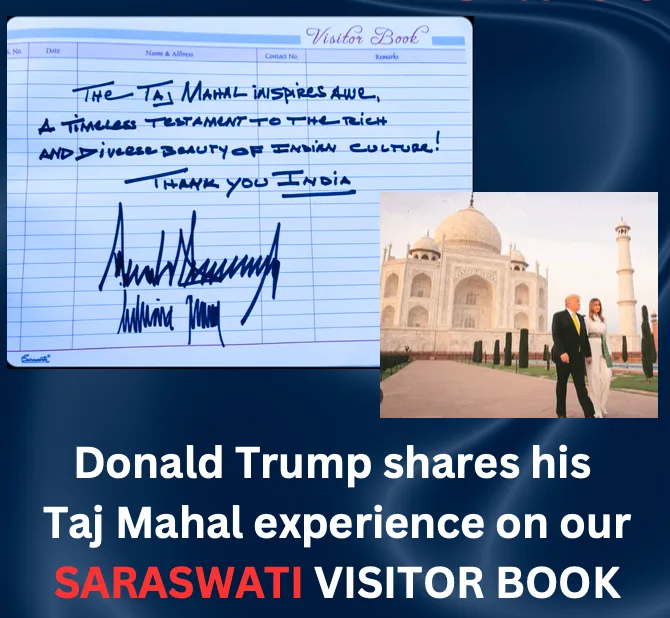 Visitor Book
S. No.
Date
Name & Address
Contact No.
Remarks
THE TAJ MAHAL INSPIRES AWE,
A TIMELESS TESTAMENT TO THE RICH
AND DIVERSE BEAUTY OF INDIAN CULTURE!
THANK YOU INDIA
Saraswati
Donald Trump shares his
Taj Mahal experience on our
SARASWATI VISITOR BOOK